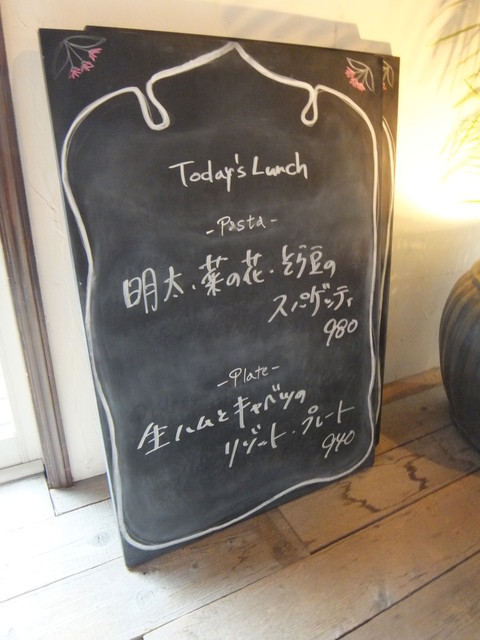 Today's Lunch
-Pasta-
明太・菜の花・そら豆の
スパゲッティ
980
-Plate-
生ハムとキャベツの
リゾット・プレート
940